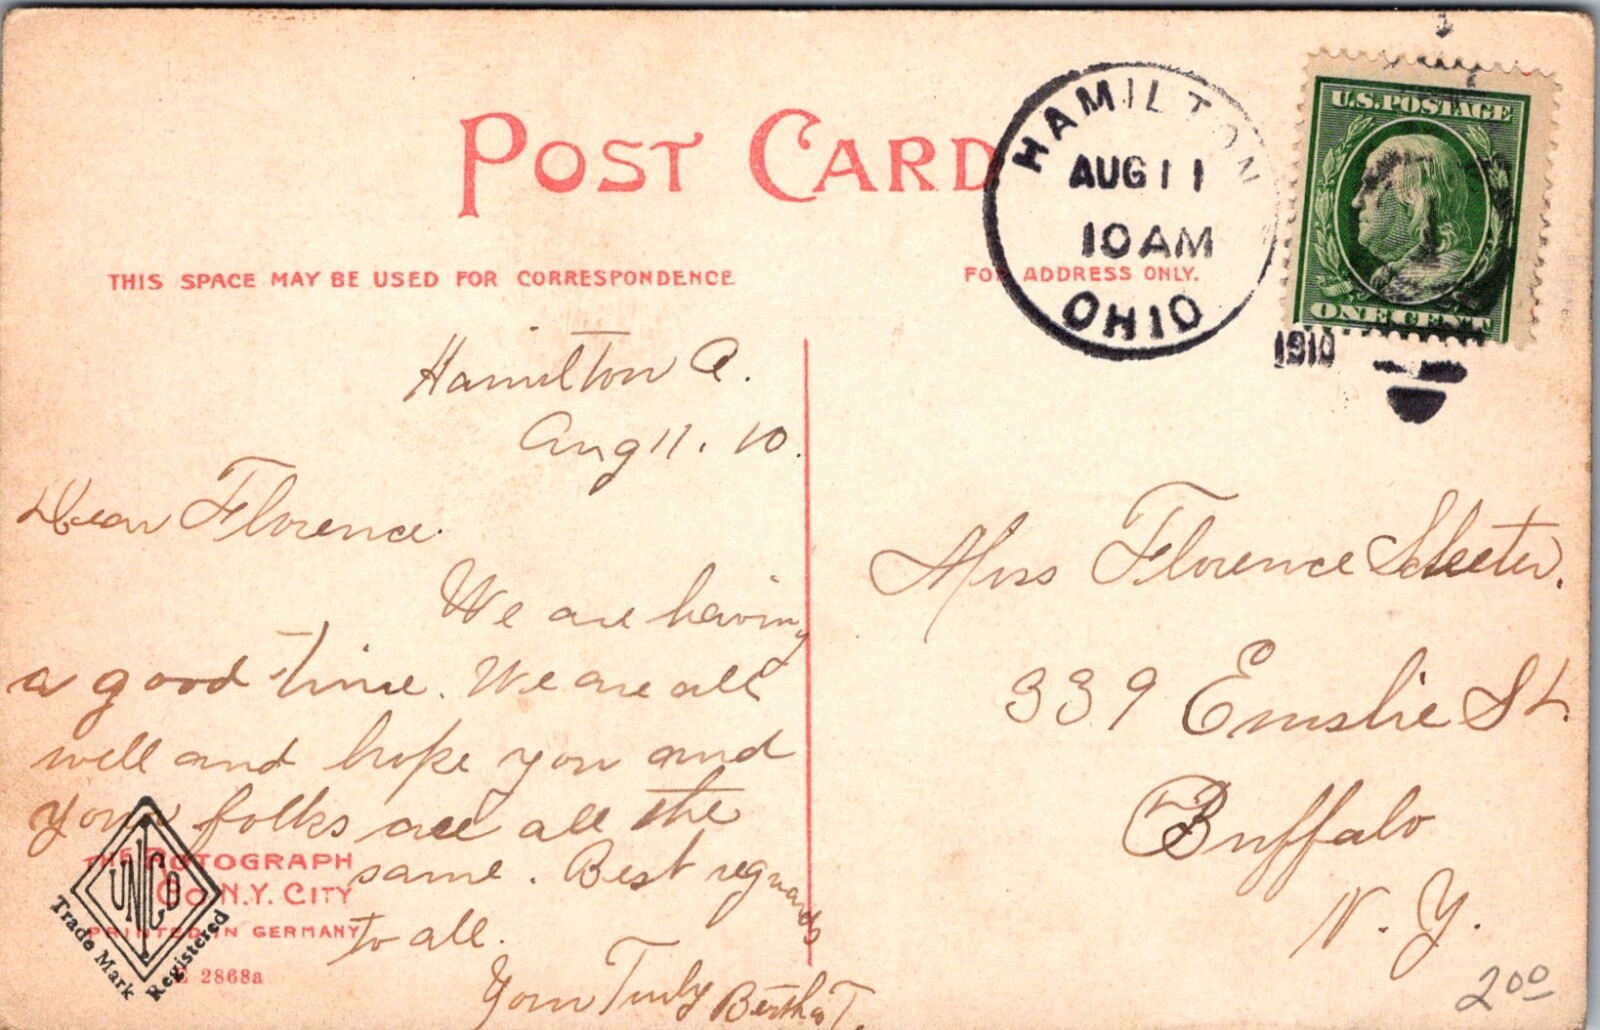 POST CARD
THIS SPACE MAY BE USED FOR CORRESPONDENCE
FOR ADDRESS ONLY.
HAMILTON
AUG 11
10 AM
OHIO
1910
U.S. POSTAGE
ONE CENT
Hamilton O.
Aug 11. 10.
Dear Florence.
We are having
a good time. We are all
well and hope you and
your folks are all the
same. Best regards
to all.
Yours Truly Bertha T.
Miss Florence
339 Emslie St.
Buffalo
N. Y.
THE ROTOGRAPH
CO. N.Y. CITY
PRINTED IN GERMANY
E 2868a
UNICO
Trade Mark Registered
200